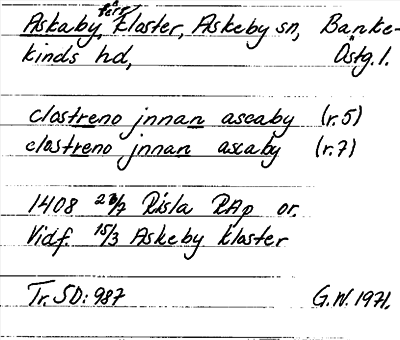 Askaby, kloster, Askeby sn, Banke-
kinds hd, Östg. l.
clostreno jnnan ascaby (r. 5)
clostreno jnnan axcaby (r. 7)
1408 23/7 Risla RAp or.
Vidf. 15/3 Askeby kloster
Tr. SD: 987 G.W. 1971.